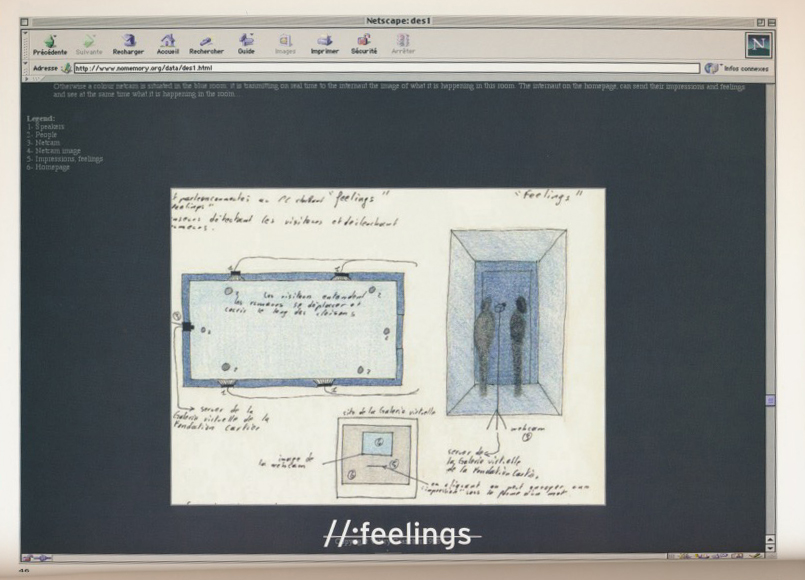 Netscape: des1
Précédente Suivante Recharger Accueil Rechercher Guide Images Imprimer Sécurité Arrêter
N
Adresse http://www.nomemory.org/data/des1.html Infos connexes
Otherwise a colour netcam is situated in the blue room, it is transmitting on real time to the internaut the image of what it is happening in this room. The internaut on the homepage, can send their impressions and feelings
and see at the same time what it is happening in the room
Legend:
1- Speakers
2- People
3- Netcam
4- Netcam image
5- Impressions, feelings
6- Homepage
"feelings"
"feelings"
détectent les visiteurs et déclenchent
Les visiteurs entendent
les rumeurs se déplacer et
le long des cloisons
server de la
Galerie virtuelle de la
Fondation Cartier
site de la Galerie virtuelle
image de
la webcam
webcam
server de
la Galerie virtuelle
de la Fondation Cartier
en cliquant on peut envoyer une
"impression" sous la forme d'un mot
//:feelings